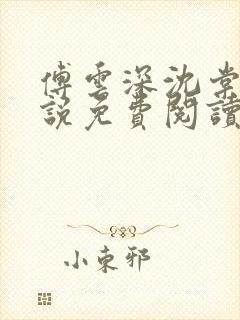 傅雲深沈棠
說免費閱讀
小東邪